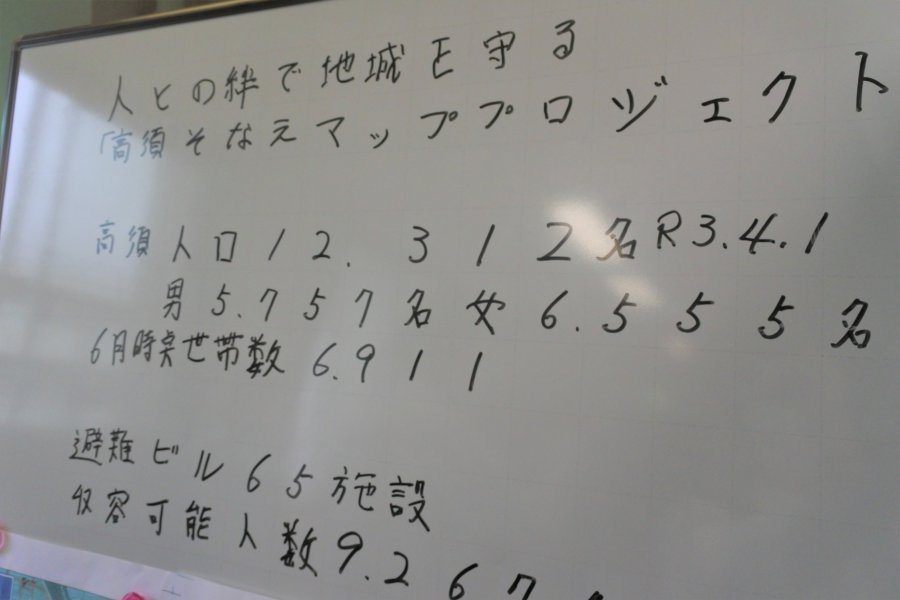 人との絆で地域を守る
「高須そなえマッププロジェクト
高須人口12.312名R3.4.1
男5.757名女6.555名
6月時点世帯数6.911
避難ビル65施設
収容可能人数9.267